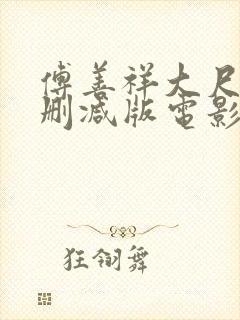 傅善祥大尺
删减版电影
狂翎舞